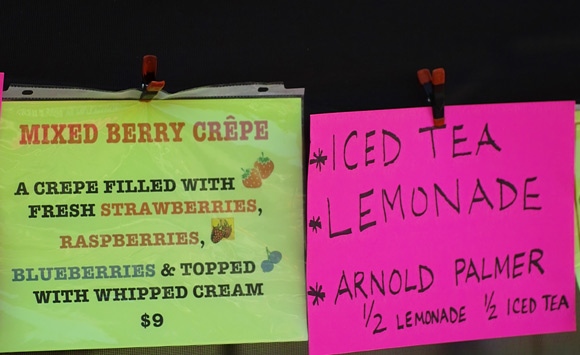 MIXED BERRY CRÊPE
A CREPE FILLED WITH
FRESH STRAWBERRIES,
RASPBERRIES,
BLUEBERRIES & TOPPED
WITH WHIPPED CREAM
$9
* ICED TEA
* LEMONADE
* ARNOLD PALMER
1/2 LEMONADE 1/2 ICED TEA